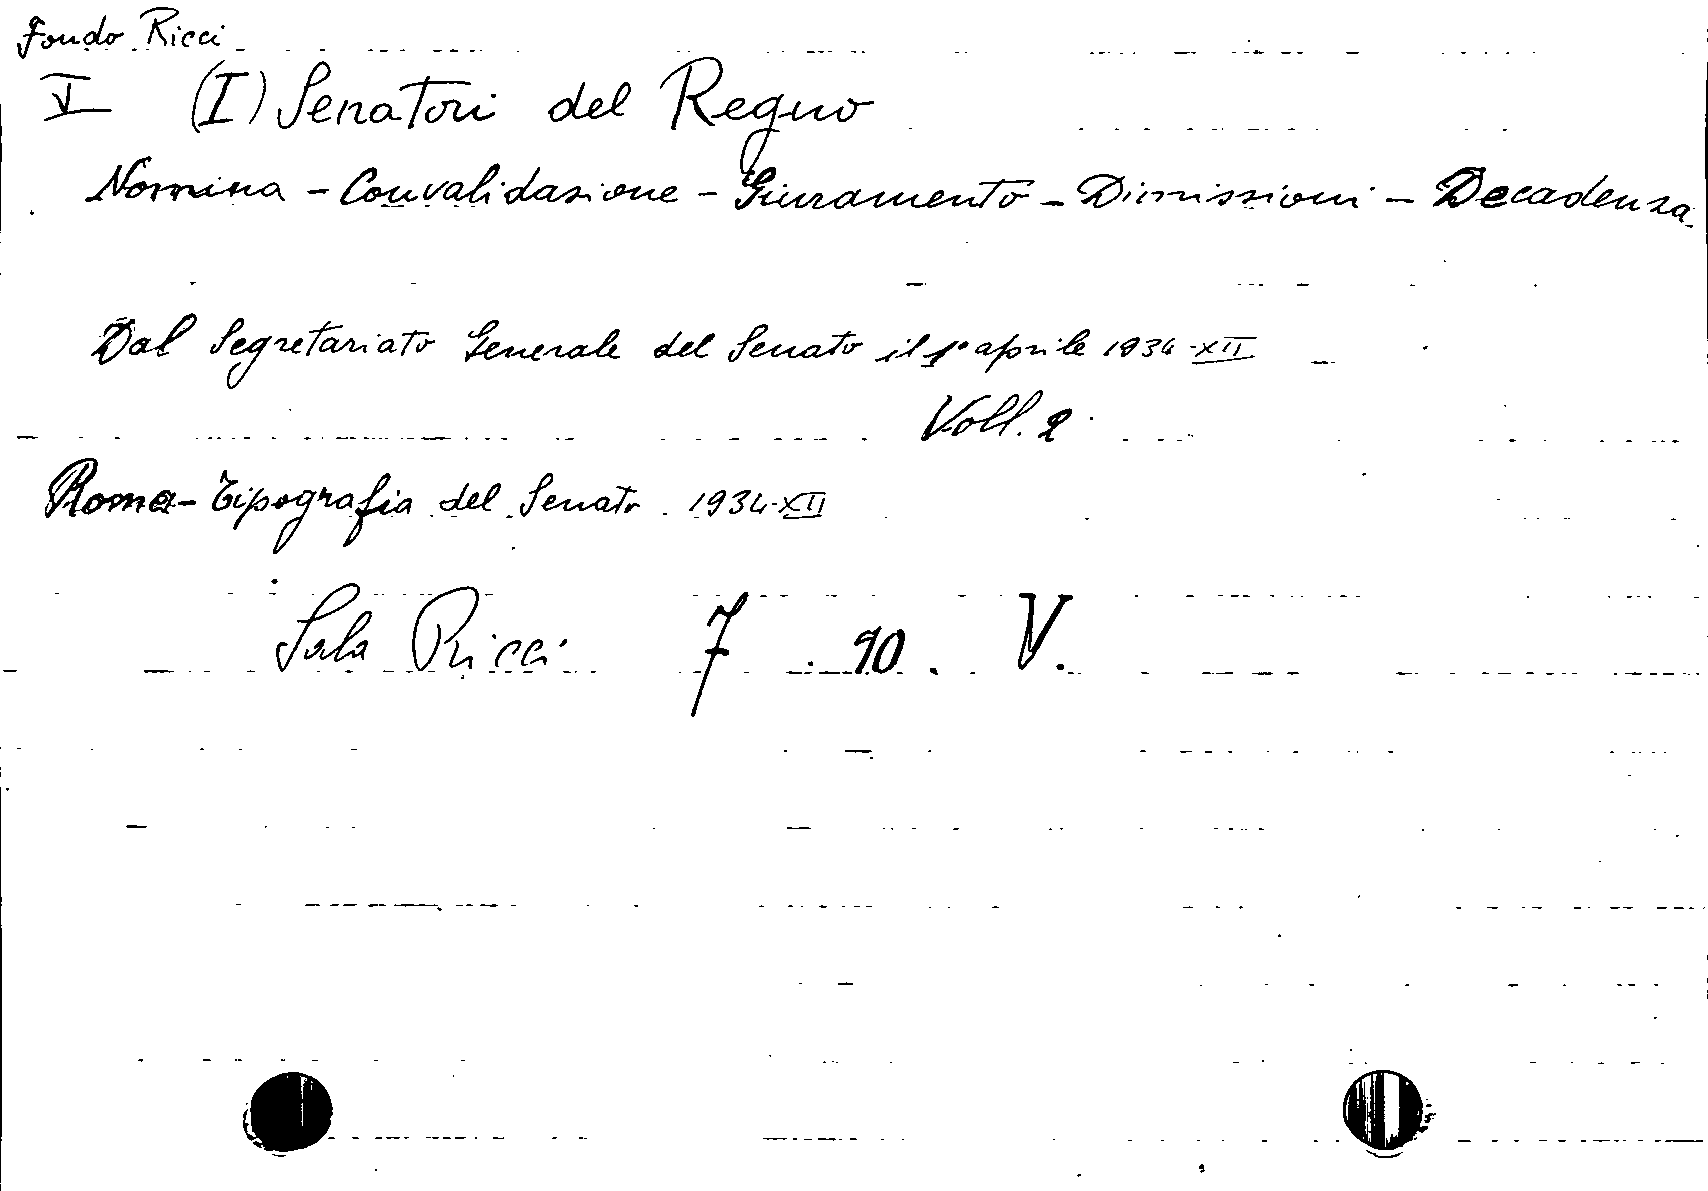 Fondo Ricci
V (I) Senatori del Regno
Nomina - Convalidazione - Giuramento - Dimissioni - Decadenza
Dal Segretariato Generale del Senato il 1° aprile 1934-XII
Voll. 2
Roma - Tipografia del Senato 1934-XII
Sala Ricci 7 . 10 . V.